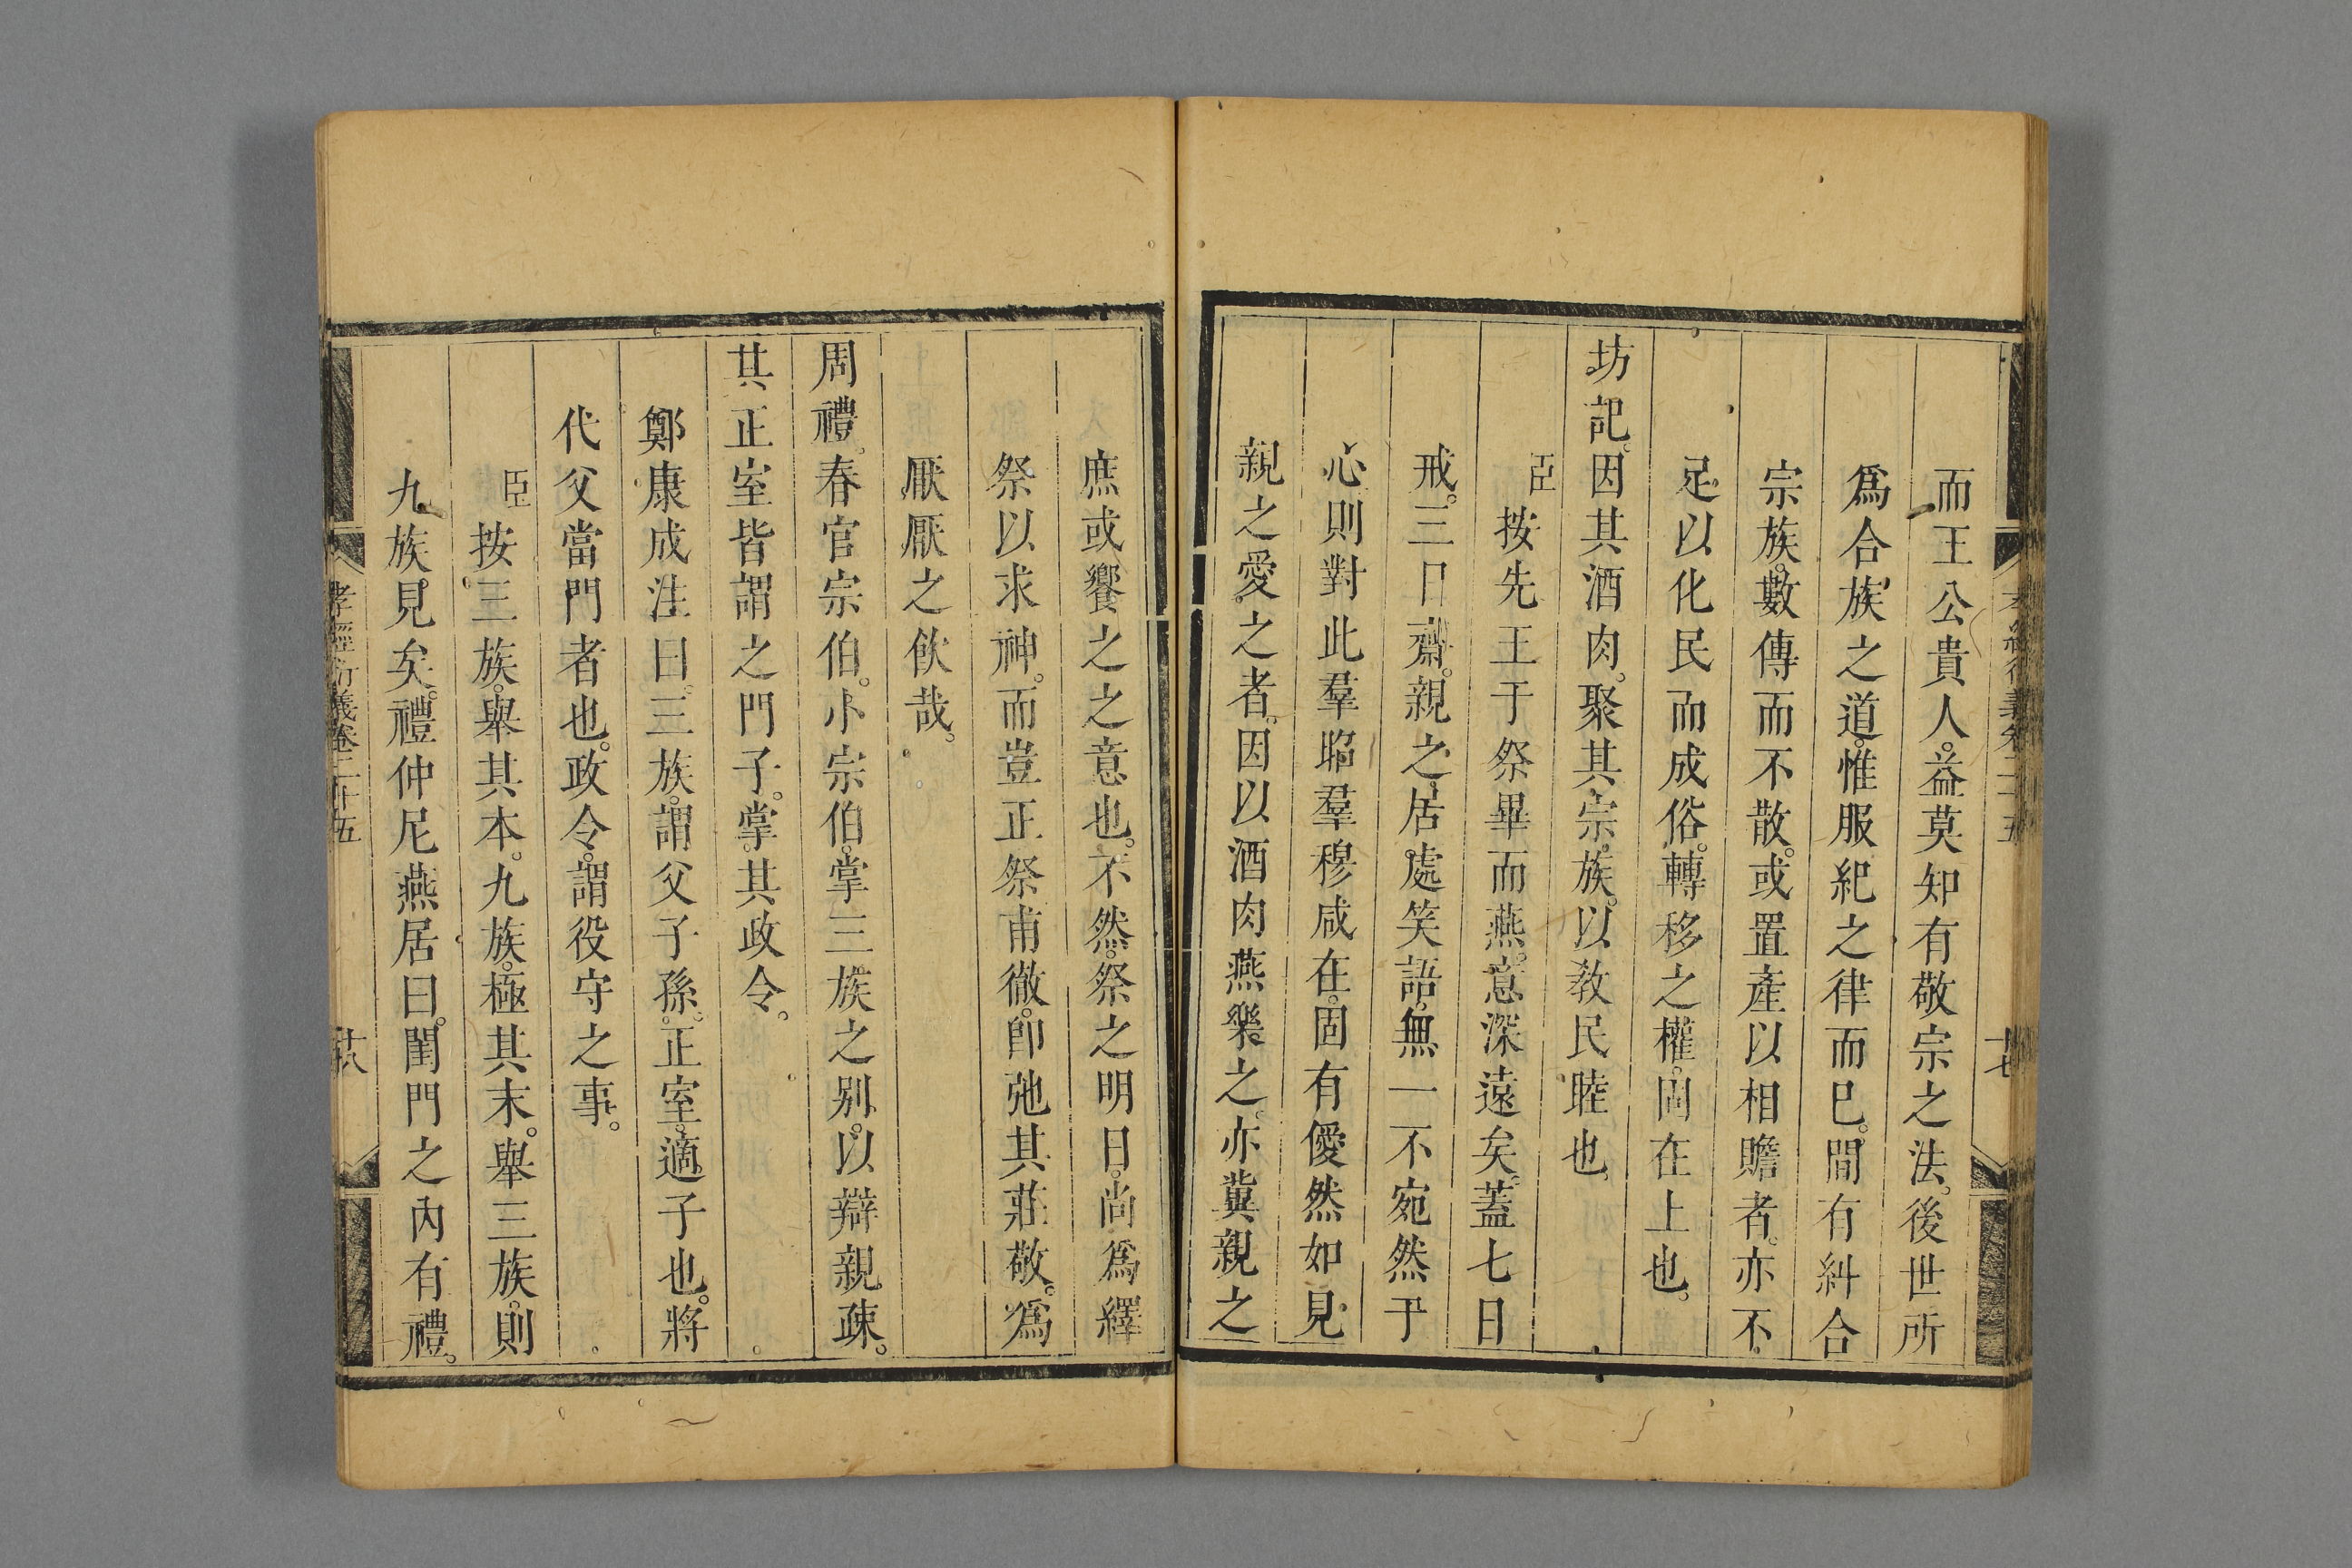 孝經衍義卷二十五
十七
而王公貴人。益莫知有敬宗之法。後世所
爲合族之道。惟服紀之律而已。間有糾合
宗族。數傳而不散。或置產以相贍者。亦不
足以化民而成俗。轉移之權。固在上也。
坊記。因其酒肉。聚其宗族。以教民睦也。
臣按先王于祭畢而燕。意深遠矣。蓋七日
戒。三日齋。親之居處笑語。無一不宛然于
心。則對此羣昭羣穆咸在。固有僾然如見
親之愛之者。因以酒肉燕樂之。亦冀親之
庶或饗之之意也。不然。祭之明日。尚爲繹
祭以求神。而豈正祭甫徹。卽弛其莊敬。爲
厭厭之飲哉。
周禮。春官宗伯。小宗伯。掌三族之别。以辯親疎。
其正室皆謂之門子。掌其政令。
鄭康成注曰。三族。謂父子孫。正室。適子也。將
代父當門者也。政令。謂役守之事。
臣按三族。舉其本。九族。極其末。舉三族。則
九族見矣。禮仲尼燕居曰。閨門之內有禮。
孝經衍義卷二十五
十八